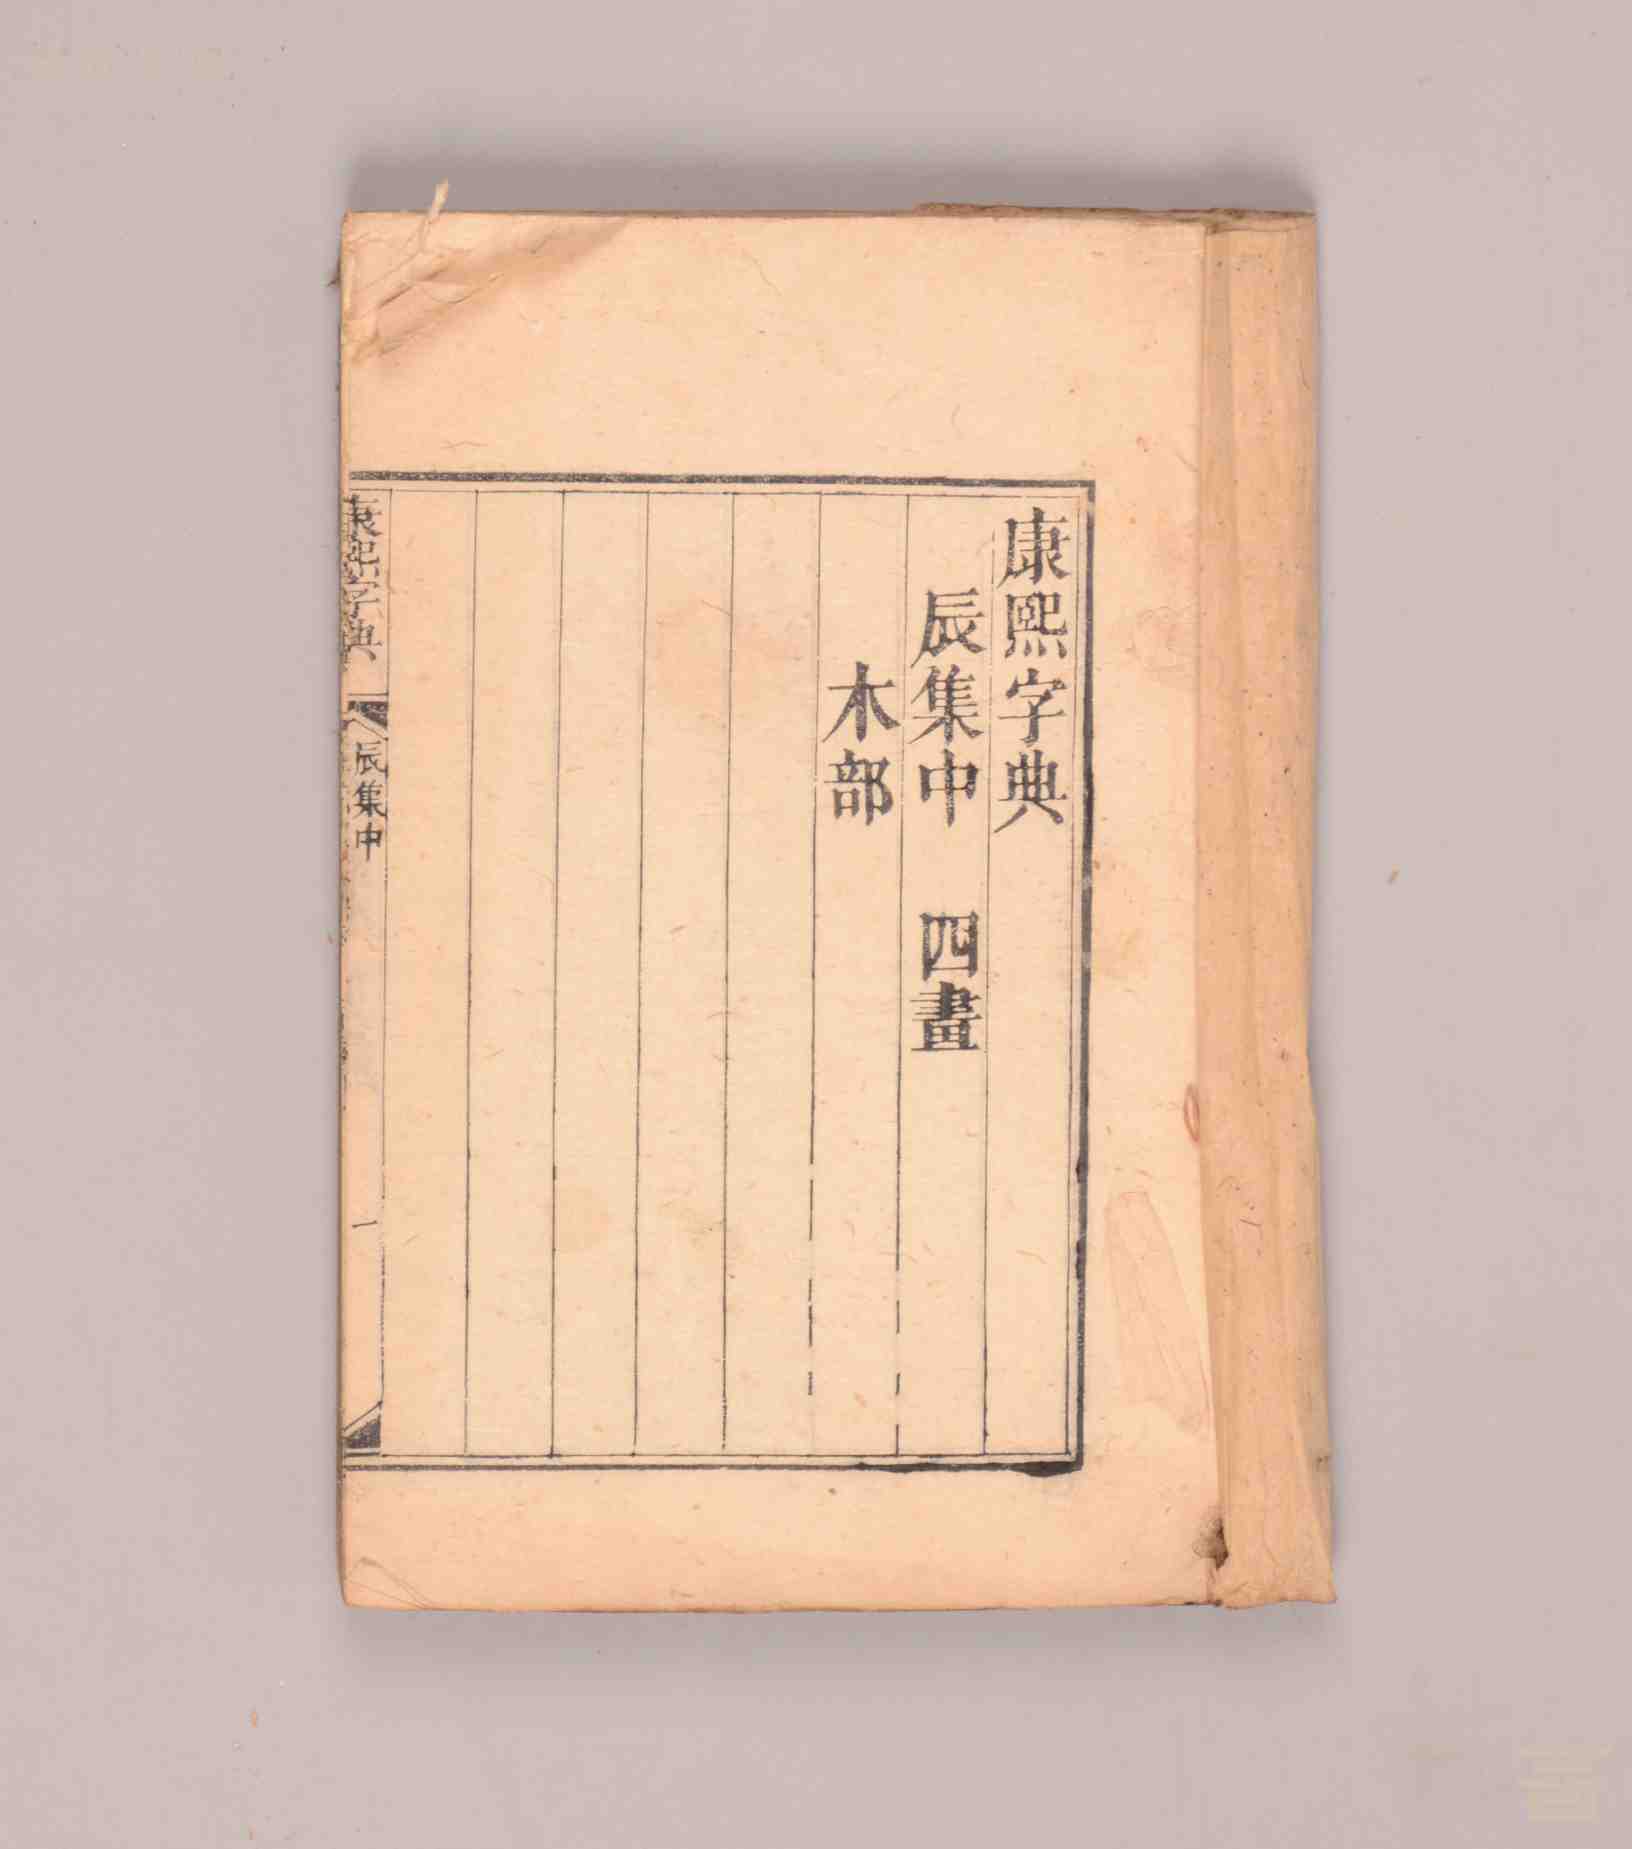 康熙字典
辰集中　四畫
木部
康熙字典
辰集中
一